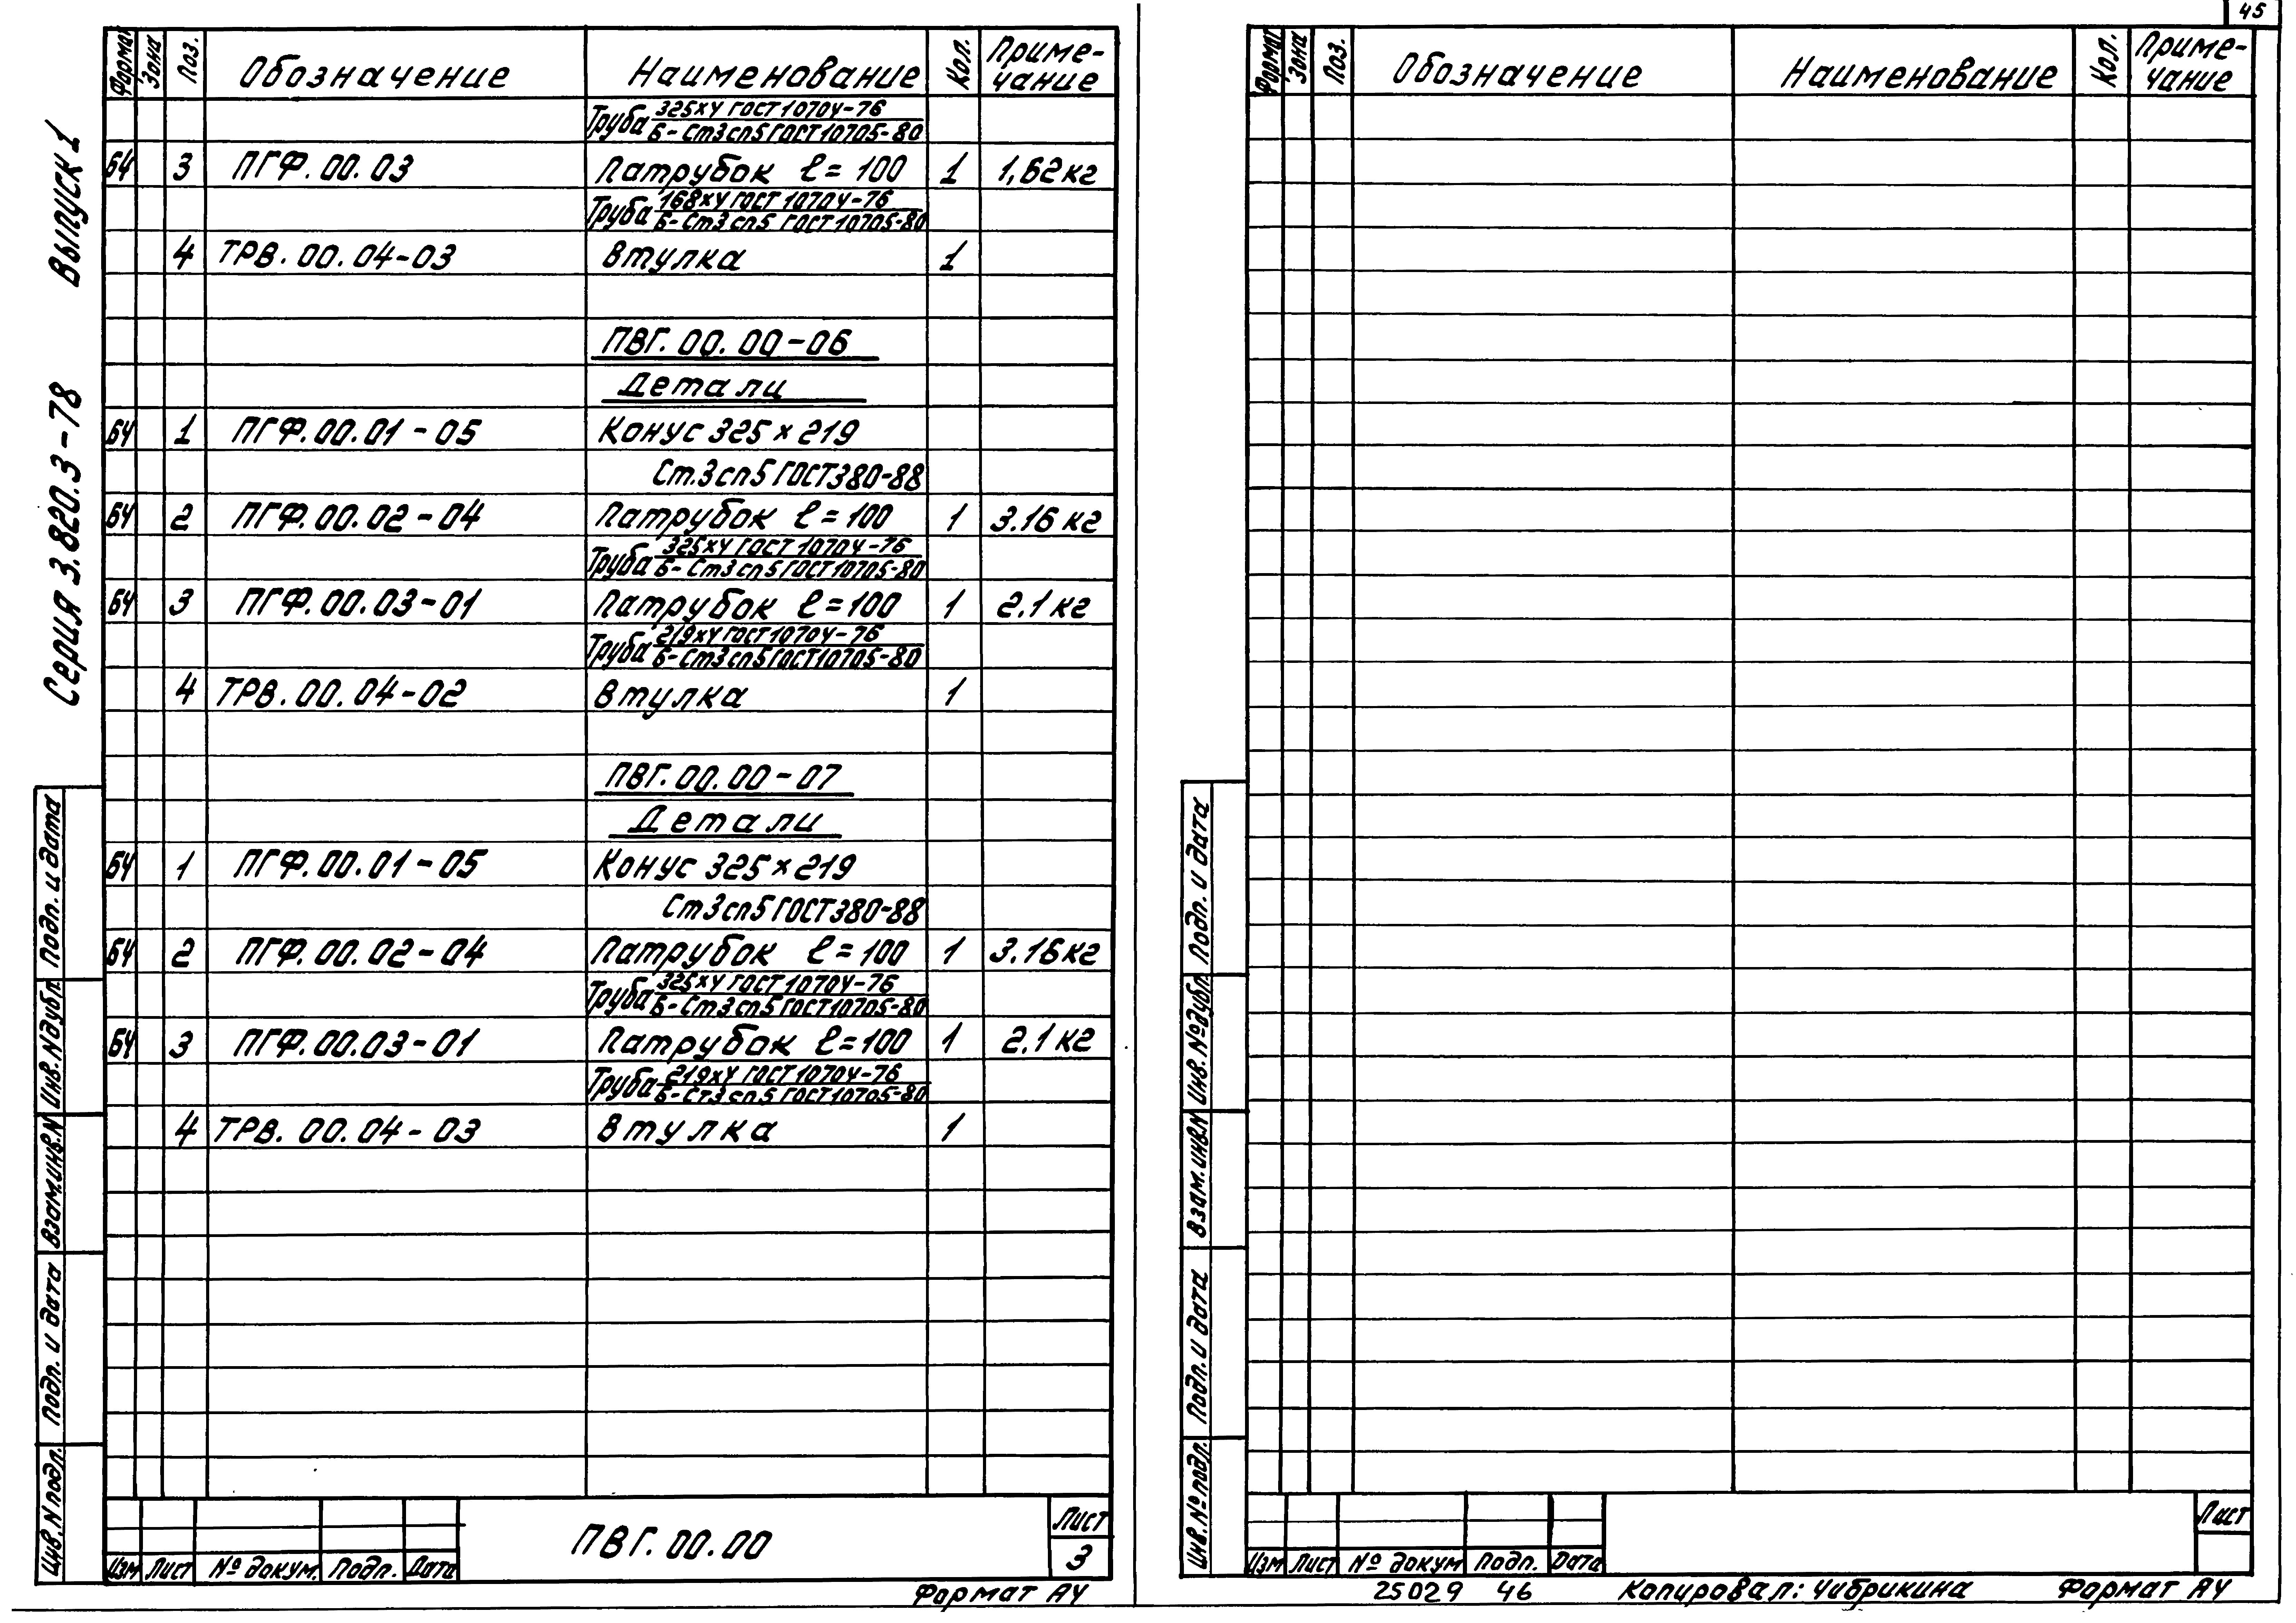 45
Серия 3.820.3-78 Выпуск 1
Формат Зона Поз. Обозначение Наименование Кол. Приме-
чание
Труба 325х4 ГОСТ 10704-76
Б-Ст3сп5 ГОСТ 10705-80
Б4 3 ПГФ.00.03 Патрубок ℓ=100 1 1,62кг
Труба 168х4 ГОСТ 10704-76
Б-Ст3сп5 ГОСТ 10705-80
4 ТРВ.00.04-03 Втулка 1
ПВГ.00.00-06
Детали
БЧ 1 ПГФ.00.01-05 Конус 325×219
Ст.3сп5 ГОСТ380-88
БЧ 2 ПГФ.00.02-04 Патрубок ℓ=100 1 3.16 кг
Труба 325х4 ГОСТ 10704-76
Б-Ст3сп5 ГОСТ 10705-80
БЧ 3 ПГФ.00.03-01 Патрубок ℓ=100 1 2.1 кг
Труба 219х4 ГОСТ 10704-76
Б-Ст3сп5 ГОСТ 10705-80
4 ТРВ.00.04-02 Втулка 1
ПВГ.00.00-07
Детали
БЧ 1 ПГФ.00.01-05 Конус 325×219
Ст3сп5 ГОСТ380-88
БЧ 2 ПГФ.00.02-04 Патрубок ℓ=100 1 3.16кг
Труба 325х4 ГОСТ 10704-76
Б-Ст3сп5 ГОСТ 10705-80
БЧ 3 ПГФ.00.03-01 Патрубок ℓ=100 1 2.1 кг
Труба 219х4 ГОСТ 10704-76
Б-Ст3сп5 ГОСТ 10705-80
4 ТРВ.00.04-03 Втулка 1
Подп. и дата
Инв. N дубл.
Взам.инв.N
Подп. и дата
Инв.N подл.
Изм Лист № докум. Подп. Дата
ПВГ.00.00
Лист
3
Формат А4
Формат Зона Поз. Обозначение Наименование Кол. Приме-
чание
Подп. и дата
Инв. № дубл.
Взам. инв.N
Подп. и дата
Инв. № подл.
Изм Лист № докум Подп. Дата
Лист
25029 46 Копировал: Чибрикина Формат А4